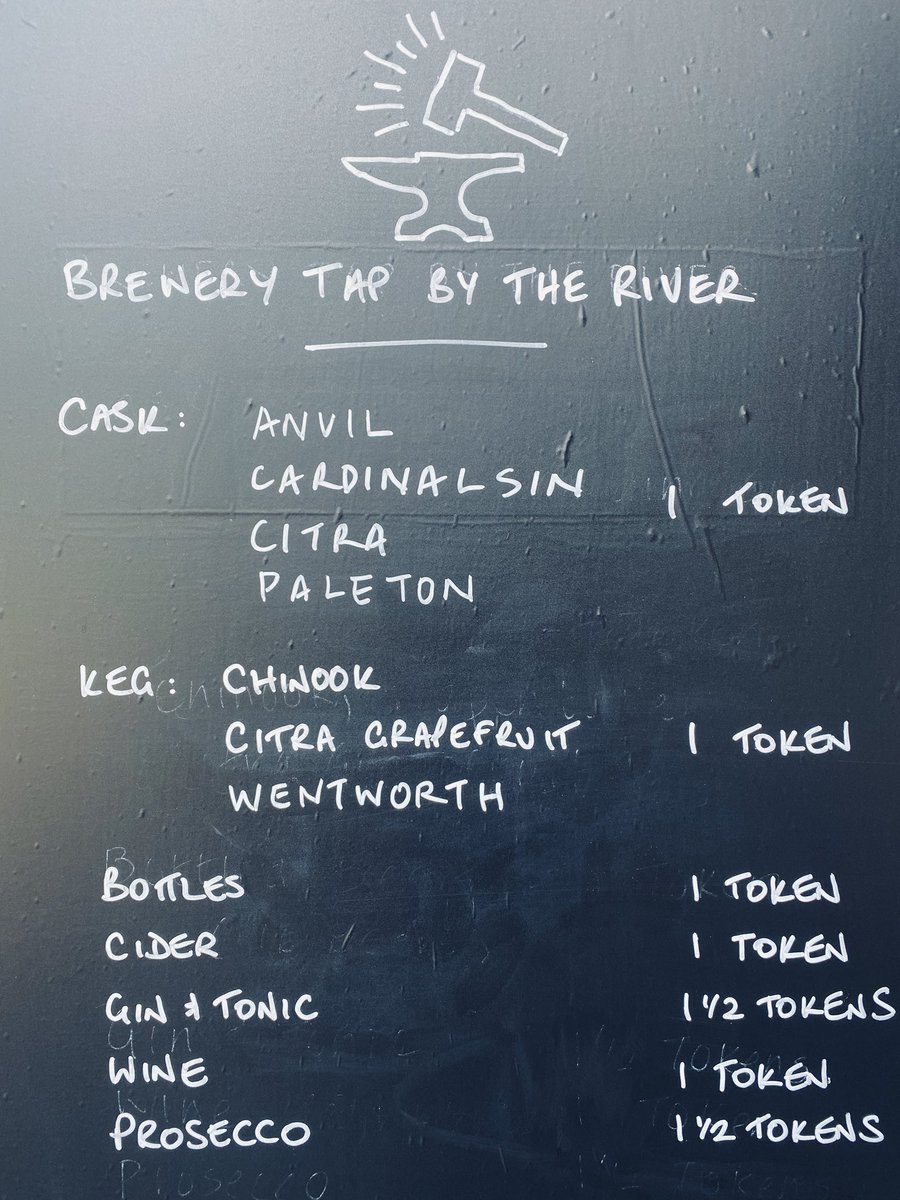 BREWERY TAP BY THE RIVER
CASK: ANVIL
CARDINALSIN
1 TOKEN
CITRA
PALETON
KEG: CHINOOK
CITRA GRAPEFRUIT 1 TOKEN
WENTWORTH
BOTTLES 1 TOKEN
CIDER 1 TOKEN
GIN & TONIC 1 1/2 TOKENS
WINE 1 TOKEN
PROSECCO 1 1/2 TOKENS
Prosecco Tokens